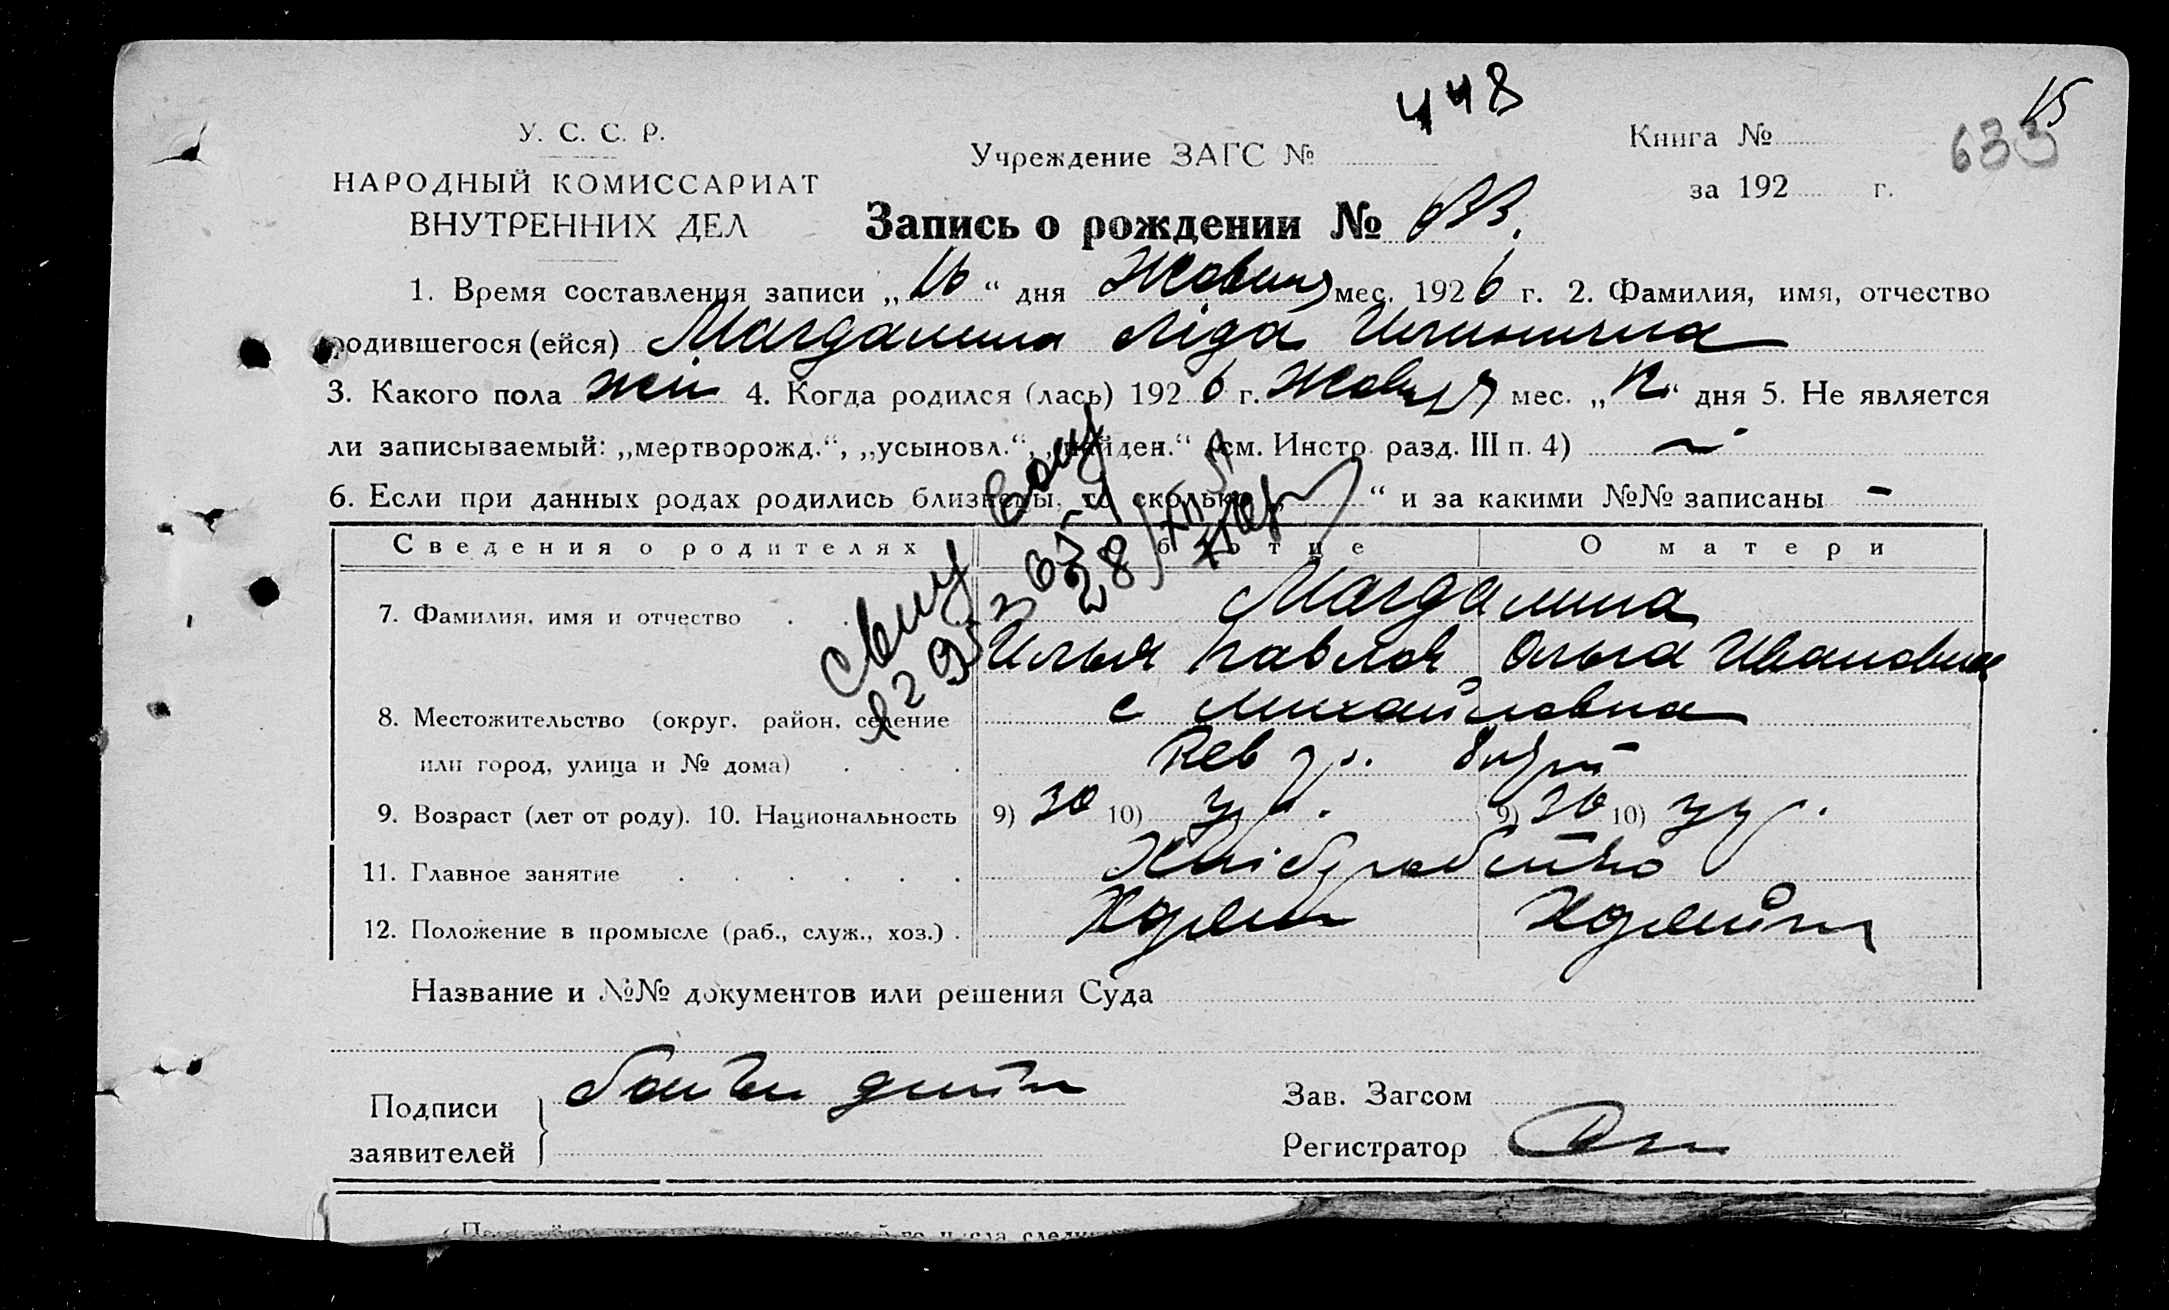 448
15
633
У. С. С. Р.
НАРОДНЫЙ КОМИССАРИАТ
ВНУТРЕННИХ ДЕЛ
Учреждение ЗАГС №
Книга №
за 192 г.
Запись о рождении № 633.
1. Время составления записи „16“ дня Жовтня мес. 1926 г. 2. Фамилия, имя, отчество
родившегося (ейся) Магдалина Ліда Иллинична
3. Какого пола жін 4. Когда родился (лась) 1926 г. Жовтня мес. „12“ дня 5. Не является
ли записываемый: „мертворожд.“, „усыновл.“, „найден.“ (см. Инстр. разд. III п. 4)
6. Если при данных родах родились близнецы, то сколько „ “ и за какими №№ записаны -
Сведения о родителях
Об отце
О матери
7. Фамилия, имя и отчество Магдалина
Илья Павлов Ольга Ивановна
8. Местожительство (округ, район, селение с Михайловка
или город, улица и № дома)
9. Возраст (лет от роду). 10. Национальность 9) 30 10) укр. 9) 30 10) укр.
11. Главное занятие Хліборобство
12. Положение в промысле (раб., служ., хоз.)
Название и №№ документов или решения Суда
Подписи
заявителей
Зав. Загсом
Регистратор